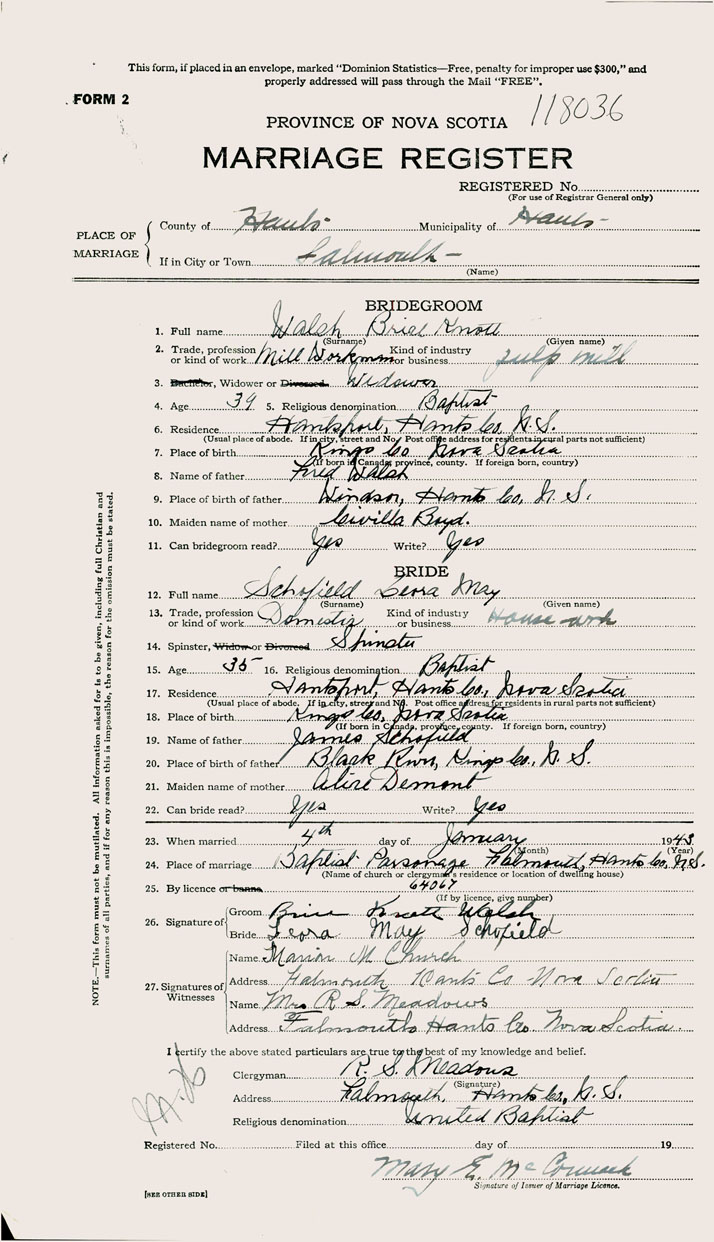 This form, if placed in an envelope, marked "Dominion Statistics—Free, penalty for improper use $300," and
properly addressed will pass through the Mail "FREE".
FORM 2
118036
PROVINCE OF NOVA SCOTIA
MARRIAGE REGISTER
REGISTERED No.
(For use of Registrar General only)
PLACE OF MARRIAGE
County of Hants Municipality of Hants
If in City or Town Falmouth
(Name)
BRIDEGROOM
1. Full name Walsh Brice Knott
(Surname) (Given name)
2. Trade, profession or kind of work Mill Workman Kind of industry or business pulp mill
3. Bachelor, Widower or Divorced. Widower
4. Age 39 5. Religious denomination Baptist
6. Residence Hantsport, Hants Co, N.S.
(Usual place of abode. If in city, street and No. Post office address for residents in rural parts not sufficient)
7. Place of birth Kings Co Nova Scotia
(If born in Canada, province, county. If foreign born, country)
8. Name of father Fred Walsh
9. Place of birth of father Windsor, Hants Co, N.S.
10. Maiden name of mother Civilla Boyd.
11. Can bridegroom read? Yes Write? Yes
BRIDE
12. Full name Schofield Leora May
(Surname) (Given name)
13. Trade, profession or kind of work Domestic Kind of industry or business House work
14. Spinster, Widow or Divorced Spinster
15. Age 35 16. Religious denomination Baptist
17. Residence Hantsport, Hants Co, Nova Scotia
(Usual place of abode. If in city, street and No. Post office address for residents in rural parts not sufficient)
18. Place of birth Kings Co, Nova Scotia
(If born in Canada, province, county. If foreign born, country)
19. Name of father James Schofield
20. Place of birth of father Black River, Kings Co., N.S.
21. Maiden name of mother Alice Demont
22. Can bride read? Yes Write? Yes
23. When married 4th day of January 1943
(Month) (Year)
24. Place of marriage Baptist Parsonage Falmouth, Hants Co, N.S.
(Name of church or clergyman's residence or location of dwelling house)
25. By licence or banns 64067
(If by licence, give number)
26. Signature of
Groom Brice Knott Walsh
Bride Leora May Schofield
27. Signatures of Witnesses
Name Marion M Church
Address Falmouth Hants Co Nova Scotia
Name Mrs R S Meadows
Address Falmouth Hants Co. Nova Scotia.
I certify the above stated particulars are true to the best of my knowledge and belief.
Clergyman R. S. Meadows
(Signature)
Address Falmouth, Hants Co, N.S.
Religious denomination United Baptist
Registered No. Filed at this office day of 19
Mary E. McCormack
Signature of Issuer of Marriage Licence.
[SEE OTHER SIDE]
NOTE.—This form must not be mutilated. All information asked for is to be given, including full Christian and
surnames of all parties, and if for any reason this is impossible, the reason for the omission must be stated.